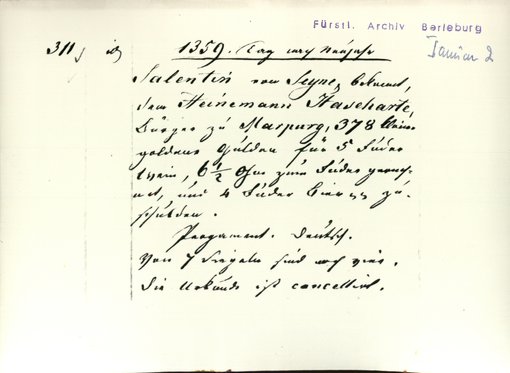 Fürstl. Archiv Berleburg
Januar 2
311, 1359. Tag nach Neujahr
Salentin von Seyne, bekennt,
dem Heinemann Haseharte,
Bürger zu Marpurg, 378 kleine
goldene Gulden für 5 Fuder
Wein, 6 1/2 Ohm zum Fuder gerech-
net, und 4 Fuder Bier zu
schulden.
Pergament. Deutsch.
Von 7 Siegeln sind noch vier.
Die Urkunde ist cancellirt.